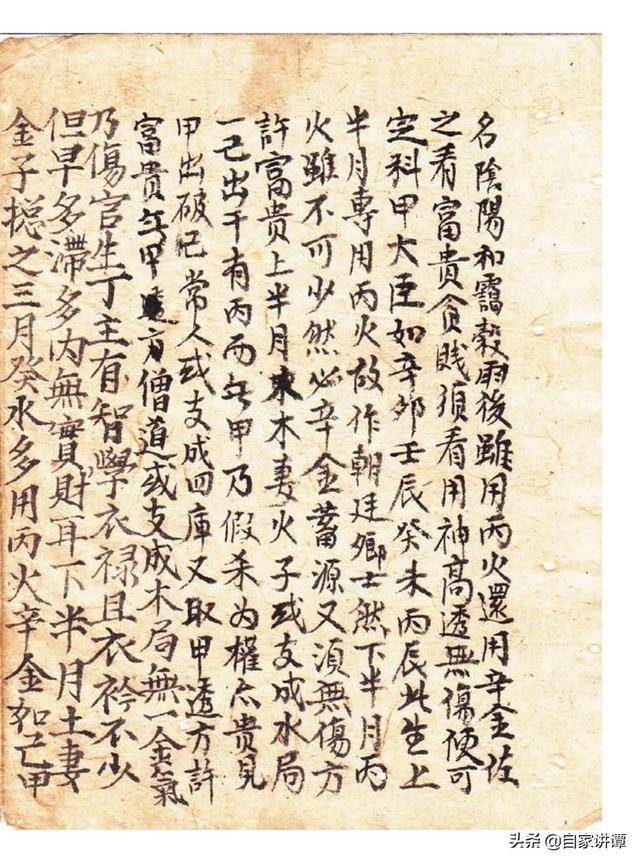 名陰陽和靄穀雨後雖用丙火還用辛金佐
之看富貴貧賤須看用神高透無傷便可
定科甲大臣如辛卯壬辰癸未丙辰此生上
半月專用丙火故作朝廷鄉士然下半月丙
火雖不可少然必辛金蓄源又須無傷方
許富貴上半月木妻火子或支成水局
一己出干有丙而無甲乃假杀为權亦貴見
甲出破己常人或支成四庫又取甲透方許
富貴無甲透方僧道或支成木局無一金氣
乃傷官生丁主有智學衣禄且衣衿不少
但早多滯多内無實財耳下半月土妻
金子揔之三月癸水多用丙火辛金和己甲
头条 @自家讲谭